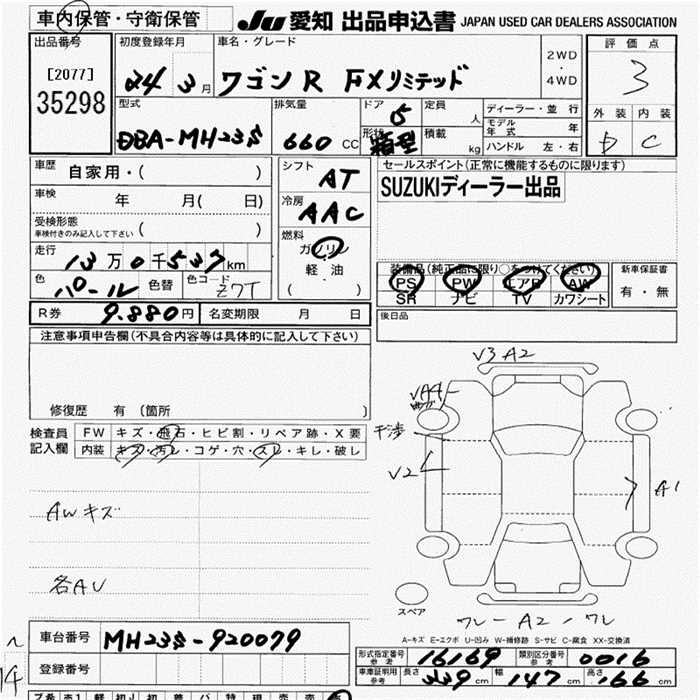 車内保管・守衛保管
JU 愛知 出品申込書 JAPAN USED CAR DEALERS ASSOCIATION
出品番号
[2077]
35298
初度登録年月
24 3月
車名・グレード
ワゴンR FXリミテッド
2WD
・
4WD
評価点
3
外装 内装
D C
型式
DBA-MH23S
排気量
660 CC
ドア 5
形状 箱型
定員 人
積載 kg
ディーラー・並行
モデル年式 年
ハンドル 左・右
車歴 自家用・( )
車検 年 月( 日)
受検形態
車検付きのみ記入して下さい ( )
走行 13万0千537km
色 パール 色替 色コード Z7T
シフト AT
冷房 AAC
燃料
ガソリン
軽油
( )
セールスポイント(正常に機能するものに限ります)
SUZUKIディーラー出品
装備品(純正品に限り○をつけてください)
PS PW エアB AW
SR ナビ TV カワシート
新車保証書
有・無
後日品
R券 9.880円 名変期限 月 日
注意事項申告欄(不具合内容等は具体的に記入して下さい)
修復歴 有 (箇所 )
検査員記入欄
FW キズ・飛石・ヒビ割・リペア跡・X要
内装 キズ・汚レ・コゲ・穴・スレ・キレ・破レ
AWキズ
各AU
V3 A2
干渉
V2
A1
スペア
ワレ-A2 ワレ
A-キズ E-エクボ U-凹み W-補修跡 S-サビ C-腐食 XX-交換済
車台番号 MH23S-920079
登録番号
形式指定番号 参考 16169
類別区分番号 参考 0016
車庫証明用 参考 長さ 339 cm 幅 147 cm 高さ 166 cm